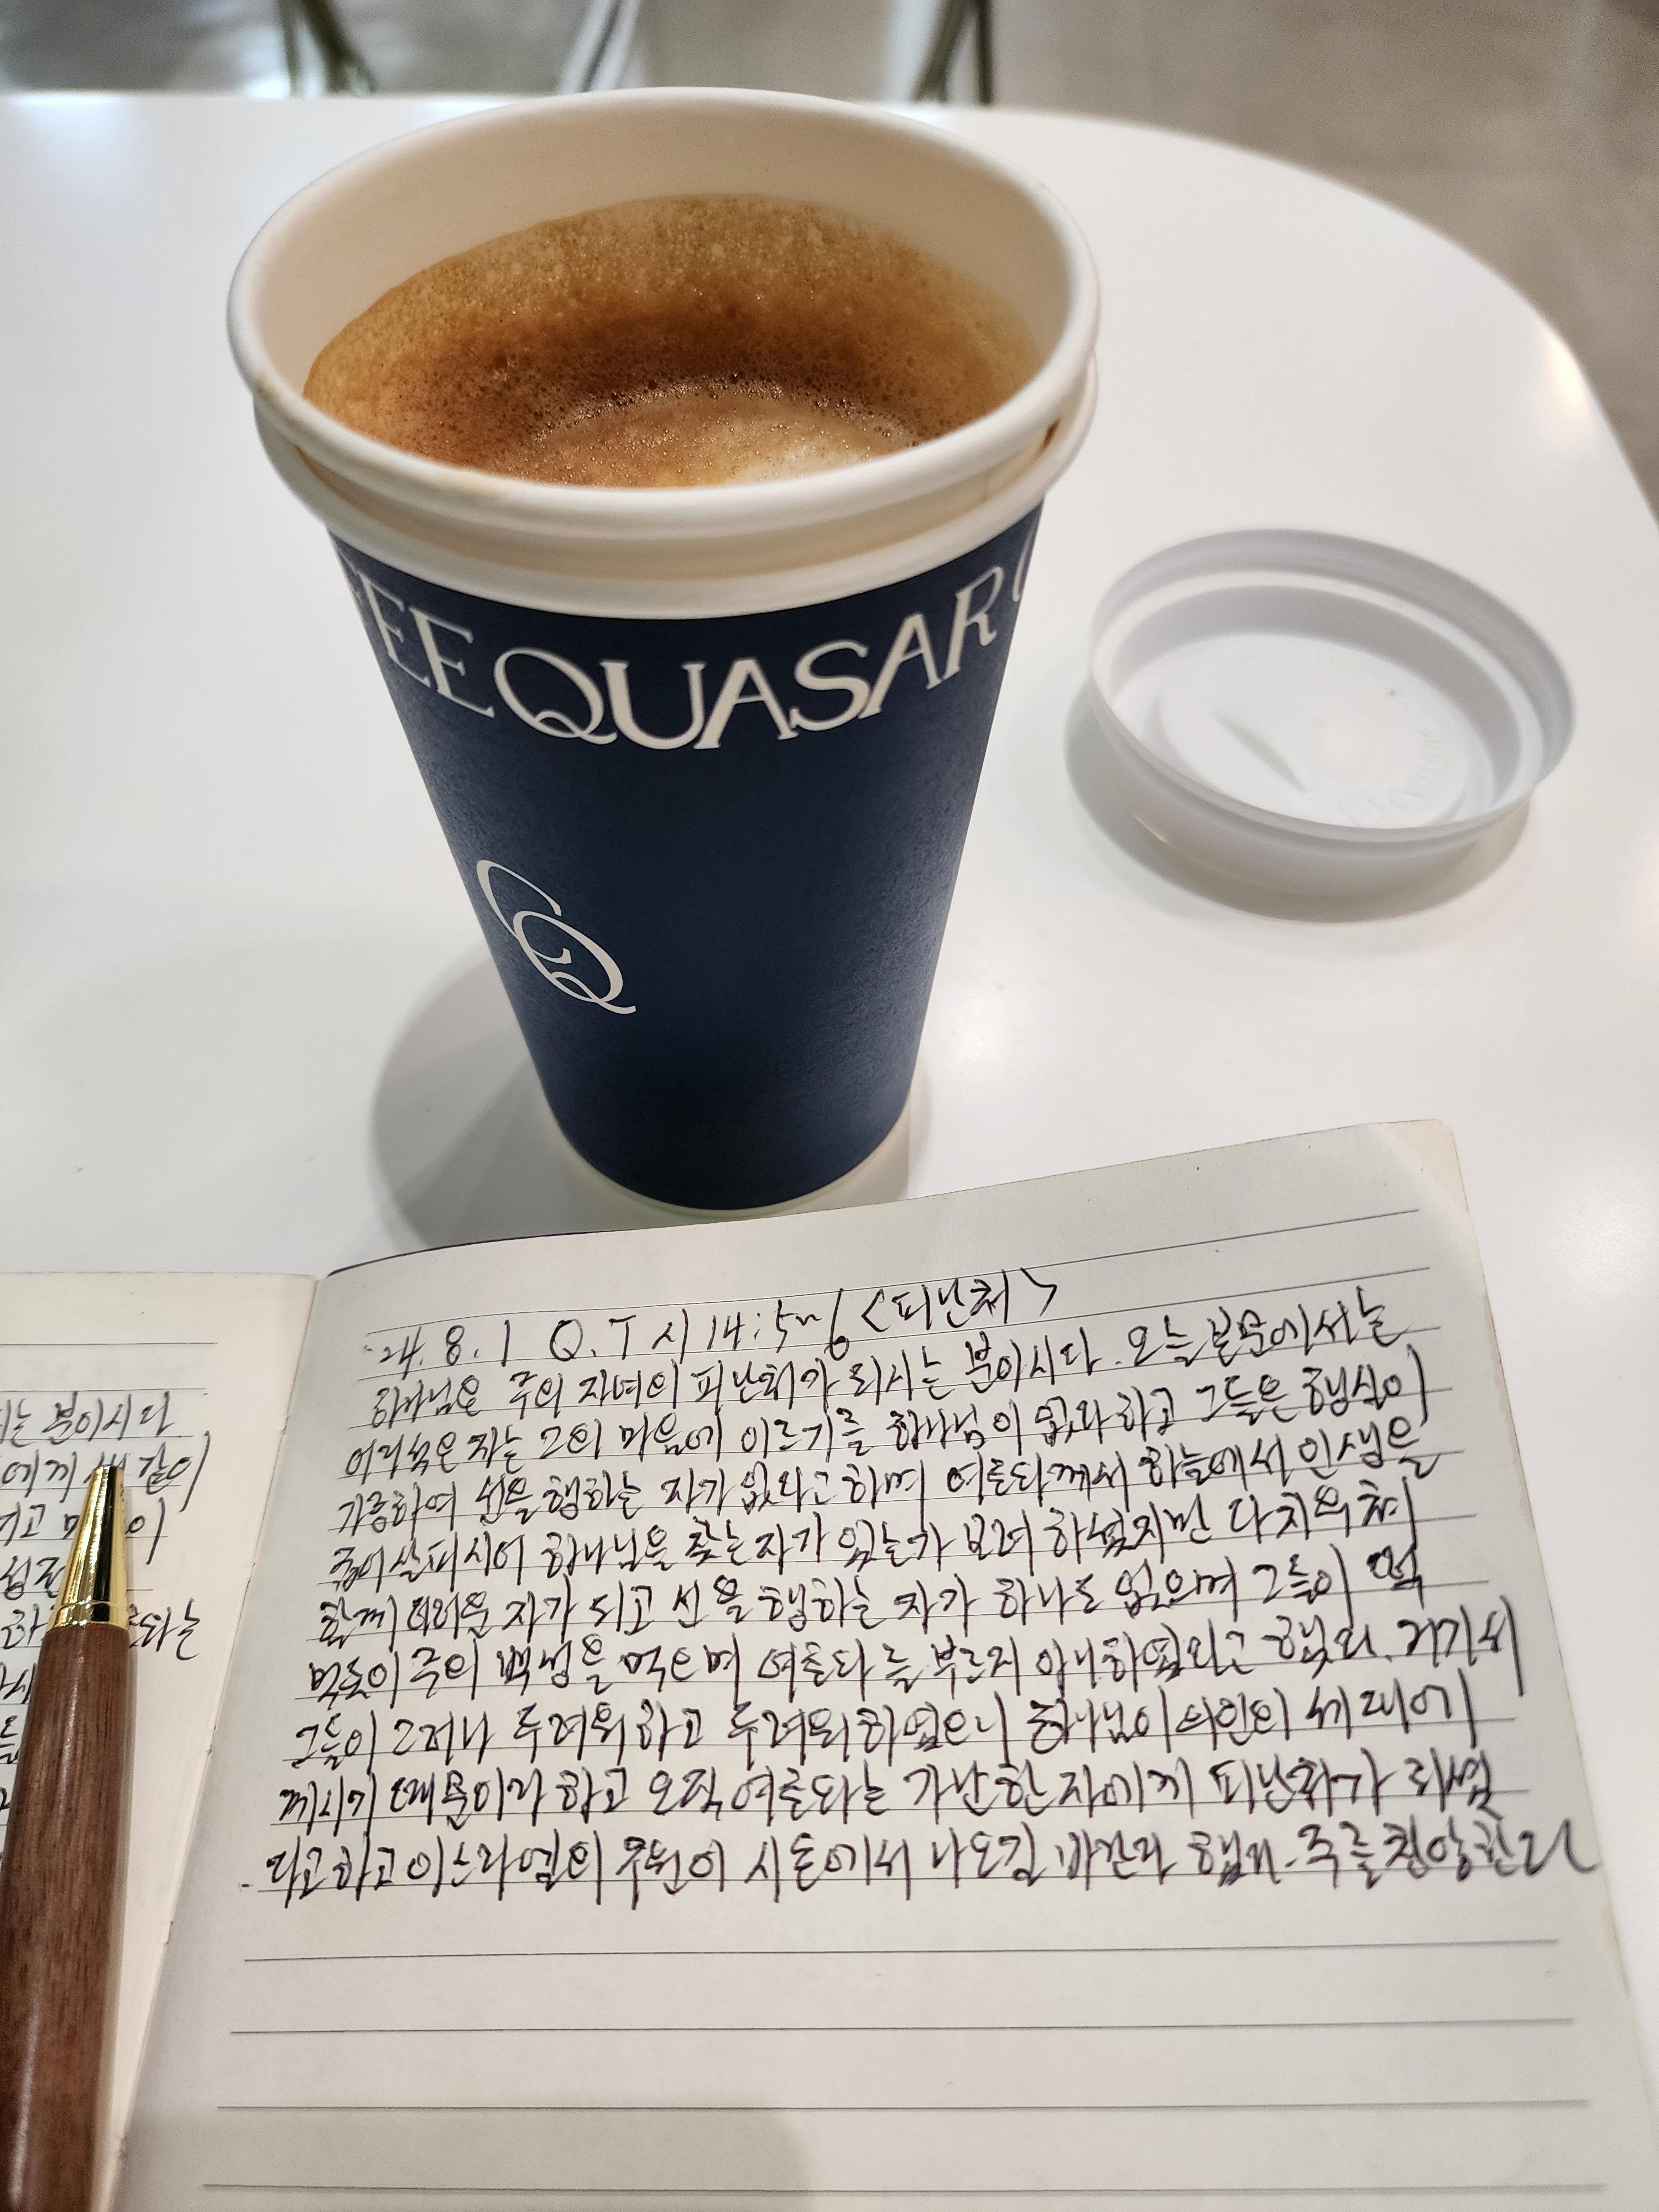 EE QUASAR
CQ
24.8.1 Q.T 시14:5~6 <피난처>
하나님은 주의 자녀의 피난처가 되시는 분이시다. 오늘 본문에서는
어리석은 자는 그의 마음에 이르기를 하나님이 없다 하고 그들은 행실이
가증하여 선을 행하는 자가 없다고 하며 여호와께서 하늘에서 인생을
굽어살피시어 하나님을 찾는 자가 있는가 보려 하셨지만 다 치우쳐
함께 더러운 자가 되고 선을 행하는 자가 하나도 없으며 그들이 떡
먹듯이 주의 백성을 먹으며 여호와를 부르지 아니하였다고 했다. 거기서
그들이 그러나 두려워하고 두려워하였으니 하나님이 의인의 세대에
께시기 때문이라 하고 오직 여호와는 가난한 자에게 피난처가 되셨
다고하고 이스라엘의 구원이 시온에서 나오길 바란다 했다. 주를 찬양한다
는 분이시다
에게 같이
고
성전
하 와는